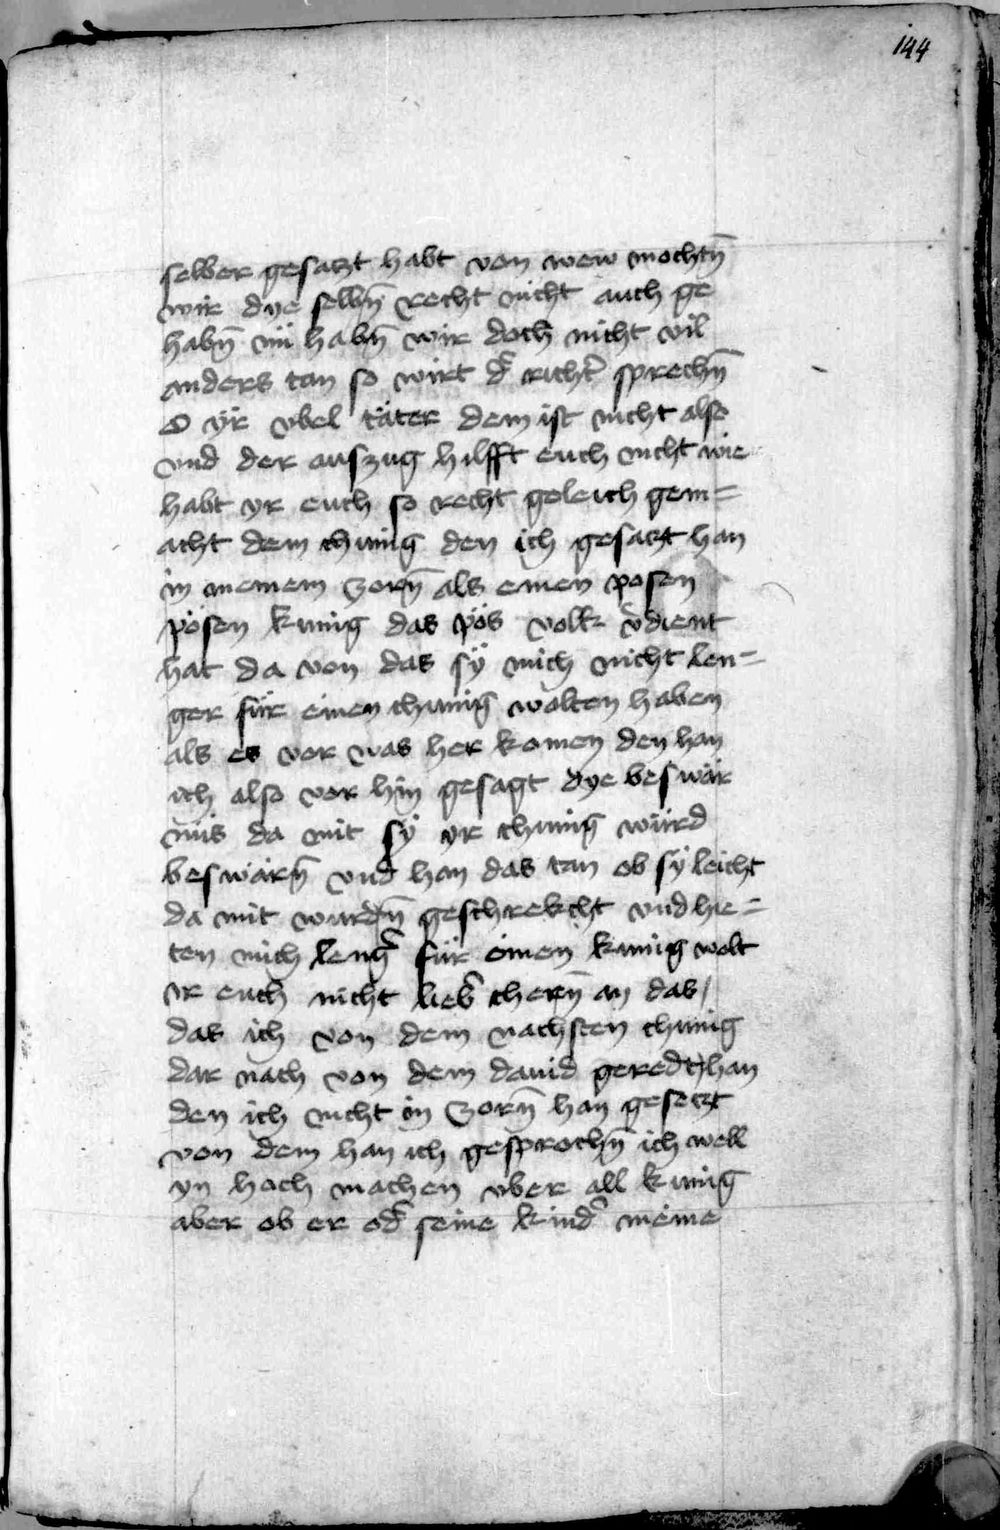 144
selber gesatzt habt von wew mochtn̄
wir dye selbn̄ recht nicht auch ge
habn̄ nū habn̄ wir doch nicht vil
anders tan so wirt d̉ richt̉ sprechn̄
O ÿr vbel täter dem ist nicht also
vnd der auszug hilfft euch nicht wie
habt yr euch so recht geleich gem=
acht dem chunig den ich gesatzt han
in meinem zorn̄ als einen posen
pösen kunig das pös volk v̉dient
hat da von das sÿ mich nicht len=
ger für einen chunig wolten haben
als es vor was her komen den han
ich also vor hin gesagt dye beswär
nüs da mit sÿ yr chunig würd
beswärn̄ vnd han das tan ob sÿ leicht
da mit wurdn̄ geschrekcht vnd hie=
ten mich leng̉ für einen kunig wolt
ir euch nicht lieb̉ chern̄ an das
das ich von dem nachsten chunig
dar nach von dem dauid geredt han
den ich nicht in zorn̄ han gesetzt
von dem han ich gesprochn̄ ich well
yn hoch machen vber all kunig
aber ob er od̉ seine kind̉ meine